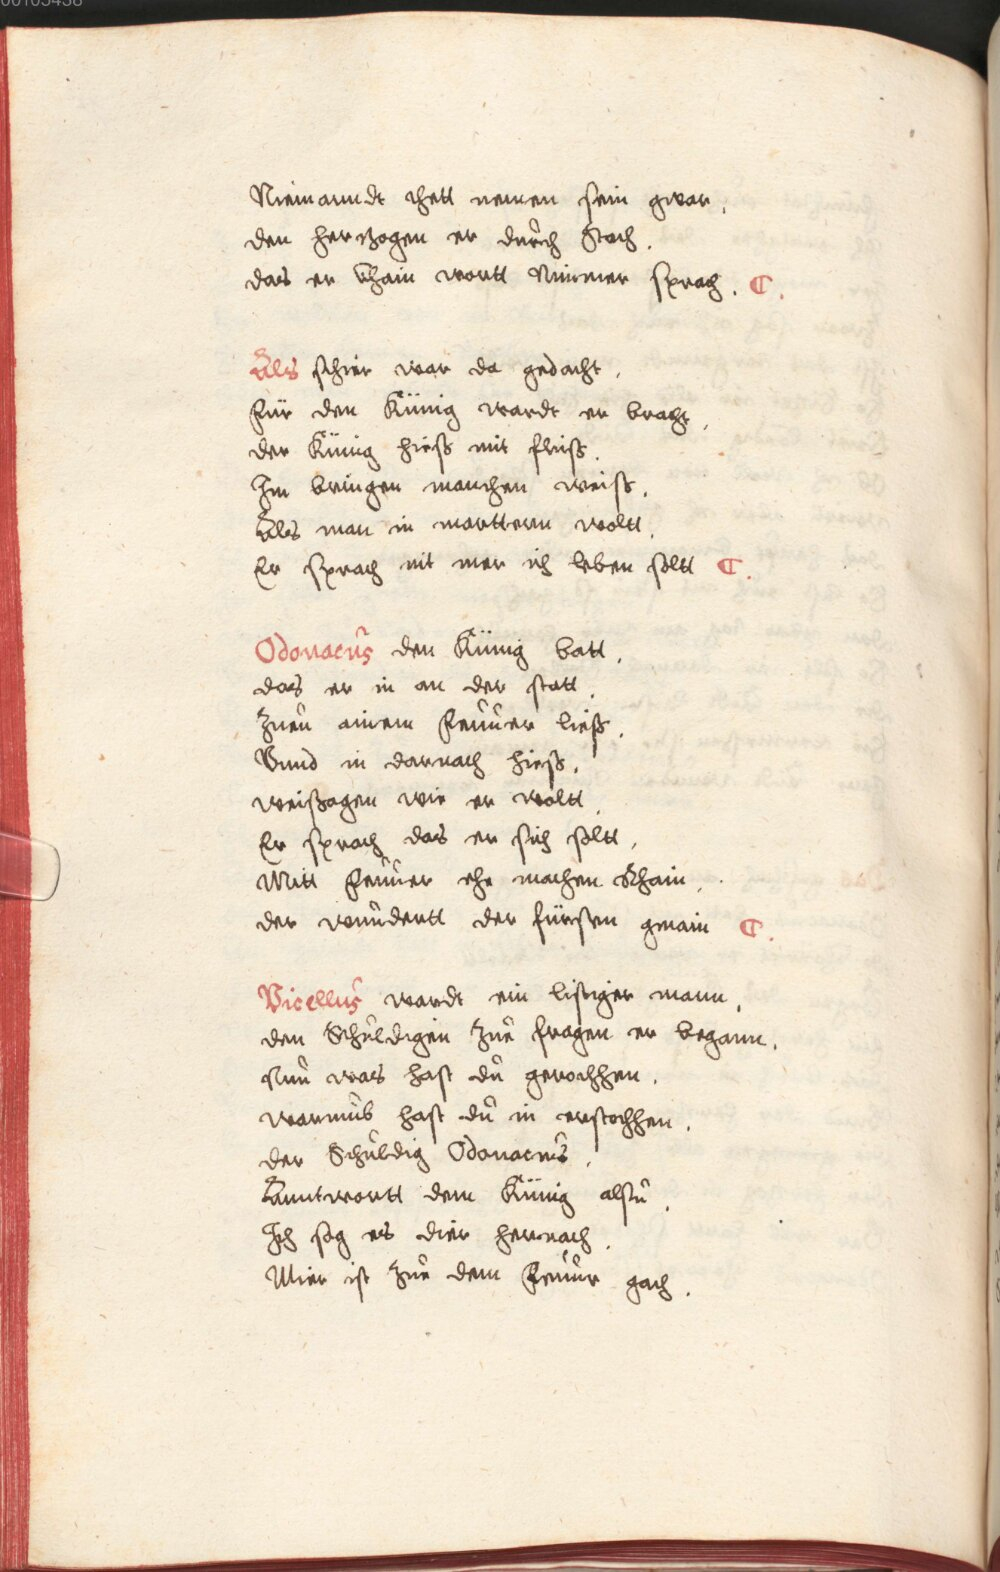 00105438
Niemanndt thett nemen sein gwar,
den herzogen er dŭrch Stach.
das er khain wortt Nimmer sprach. C.
Als schier war da gedacht.
Für den Künig wardt er bracht,
der Künig hieß mit fleiß.
Im bringen manchen weiß.
Als man in marttern woltt.
Er sprach nit mer ich leben soltt C.
Odonacŭs den Künig batt.
das er in an der statt.
Zueŭ ainem Feŭŭer ließ.
Vnnd in darnach hieß.
weissagen wie er woltt.
Er sprach das er sich soltt.
Mitt Feŭŭer ehe machen Khain.
der wŭndertt der fürsten gmain C.
Vicellŭs wardt ein listiger mann,
den Schŭldigen Zŭe fragen er begann.
Nŭn was hast dŭ gerochhen.
warmŭb hast dŭ in erstochhen.
der Schŭldig Odonacŭs.
Anntwortt dem Künig alsŭ.
Ich sag es dier hernach.
Mier ist Zŭe dem Feŭŭr gach.